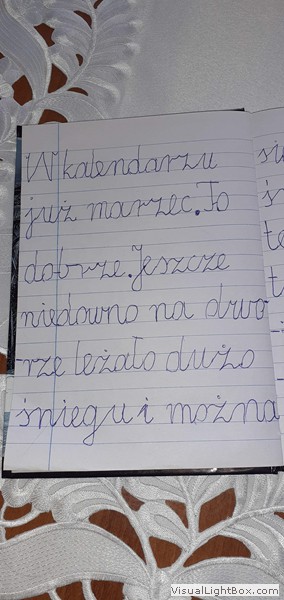 W kalendarzu
już marzec. To
dobrze. Jeszcze
niedowno na dwo
-rze leżało dużo
śniegu i można
VisualLightBox.com